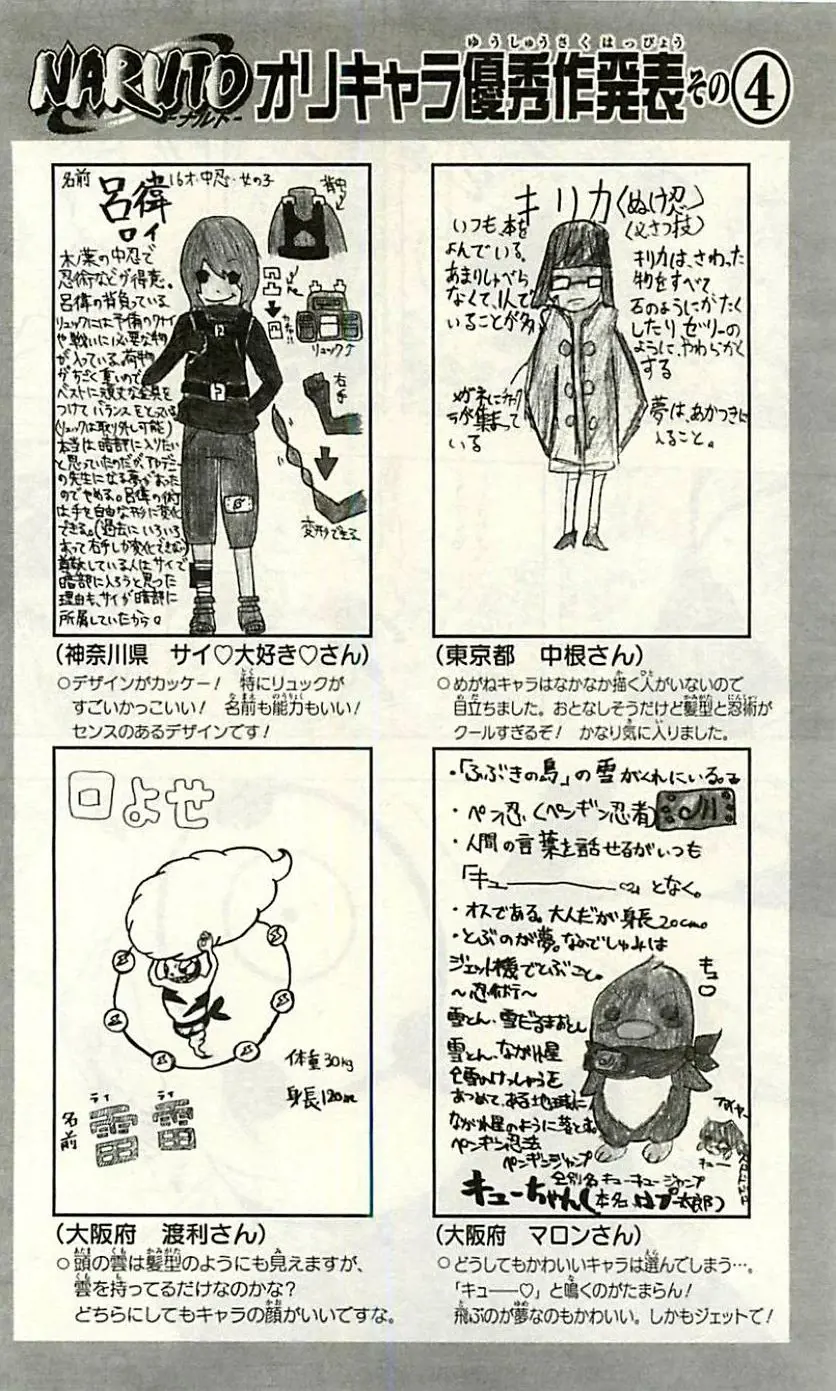 NARUTO
-ナルト-
オリキャラ優秀作発表その④
ゆうしゅうさくはっぴょう
名前
16才・中忍・女の子
呂偉
ロイ
木ノ葉の中忍で
忍術などが得意。
呂偉の背負っている
リュックには予備のクナイ
や戦いに必要な物
が入っている。荷物
がすごく重いので
ベストに頑丈な金具を
つけてバランスをとっている
(リュックは取り外し可能)
本当は暗部に入りたい
と思っていたのだが、アカデミー
の先生になる夢があった
のでやめる。呂偉の術
は手を自由な形に変化
できる。(過去にいろいろ
あって右手しか変化できない)
尊敬している人はサイで
暗部に入ろうと思った
理由も、サイが暗部に
所属していたから。
背中
リュック↑
右手
変形できる
(神奈川県 サイ♡大好き♡さん)
○デザインがカッケー! 特にリュックが
すごいかっこいい! 名前も能力もいい!
センスのあるデザインです!
キリカ(ぬけ忍)
(ひさつ技)
いつも、本を
よんでいる。
あまりしゃべら
なくて、1人で
いることが多い
キリカは、さわった
物をすべて
石のようにかたく
したり、ゼリーの
ように、やわらかく
する
メガネにチャク
ラが集まって
いる
夢は、あかつきに
入ること。
(東京都 中根さん)
○めがねキャラはなかなか描く人がいないので
目立ちました。おとなしそうだけど髪型と忍術が
クールすぎるぞ! かなり気に入りました。
口よせ
体重30kg
身長120cm
名前
ライ ライ
雷 雷
(大阪府 渡利さん)
○頭の雲は髪型のようにも見えますが、
雲を持ってるだけなのかな?
どちらにしてもキャラの顔がいいですな。
・「ふぶきの島」の雪がくれにいる。
・ペン忍(ペンギン忍者)
・人間の言葉を話せるがいつも
「キュー――♡」となく。
・オスである。大人だが身長20cm。
・とぶのが夢。なかでしゅみは
ジェット機でとぶこと。
〜忍術〜
雪とん・雪だるまおとし
雪とん・ながれ星
雪のけっしょうを
あつめて、ある地域に
ながれ星のように落とす。
ペンギン忍法
ペンギンジャンプ
別名キューキュージャンプ
キュー♡
キューちゃん(本名 はプ太郎)
(大阪府 マロンさん)
○どうしてもかわいいキャラは選んでしまう…。
「キュー―♡」と鳴くのがたまらん!
飛ぶのが夢なのもかわいい。しかもジェットで!